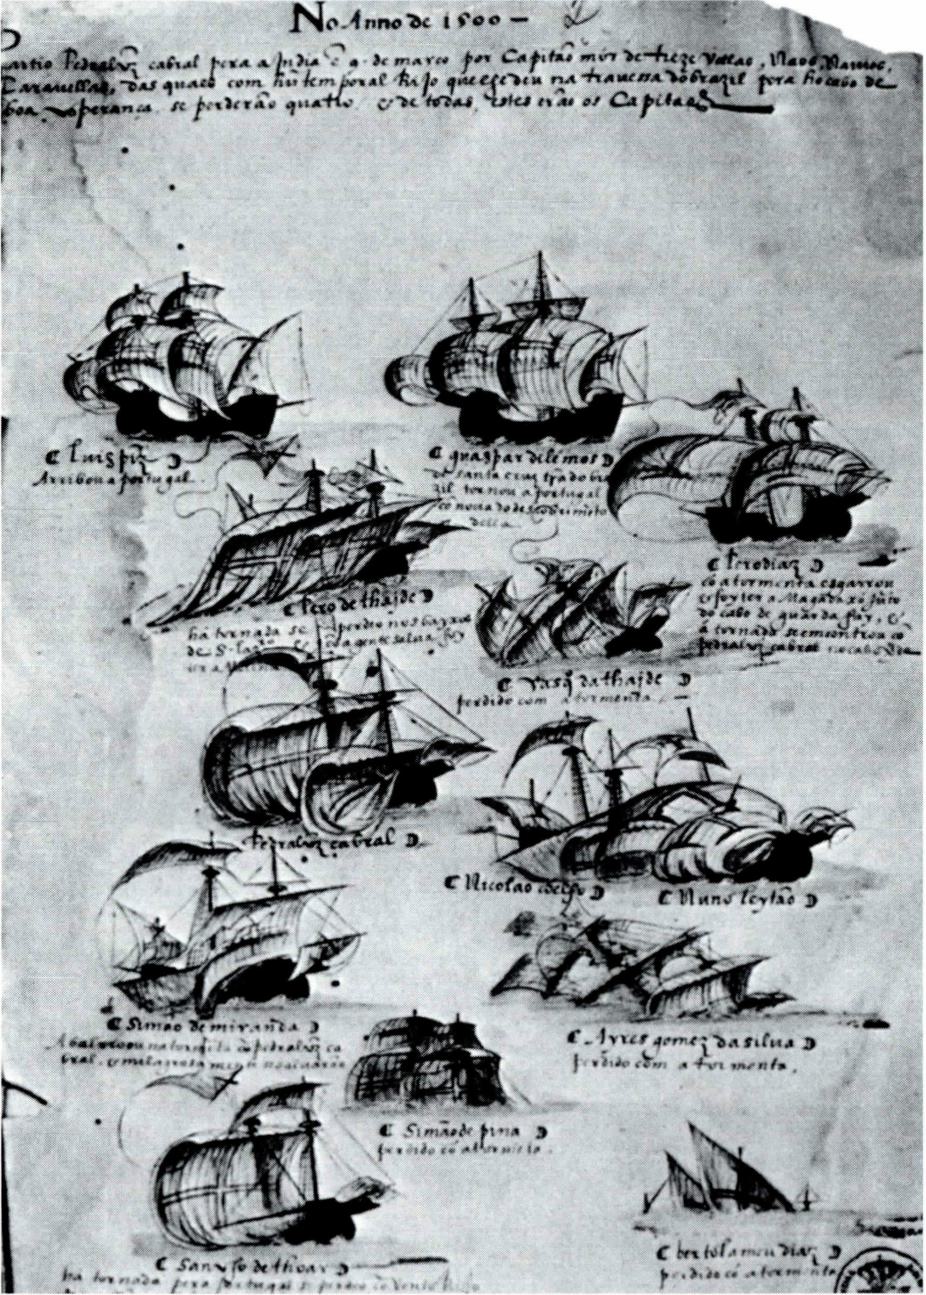 No Anno de 1500 —
Partio Pedralvz cabral pera a Jndia ẽ 9. de março por Capitão mór de treze vellas, Naos, Navios,
Caravellas, das quaes com hũ temporal Rijo que ... deu na travessa do brazil pera ho cabo de
boa. Sperança. se perderão quatro. & de todas, estes erão os Capitaes
Luis piz
Arribou a portugal.
guaspar de lemos
da santa cruz trã do bra
zil tornou a portugal
cõ nova do descobrimẽto
della.
pero diaz
cõ a tormenta esgarrou
& foy ter a Magadaxó junto
do Cabo de guardafuy, &
á tornada se emcontrou cõ
pedralvz cabral no cabo
pero de thajde
há tornada se perdeo nos bayxos
de S. la
Vasq̃ da thajde
perdido com a tormenta. —
Pedralvz cabral
Nicolao coelho
Nuno leytão
Simão de miranda
na tormẽta cõ pedralvz ca
bral. & milagrosa
Ayres gomez da silva
perdido com a tormenta.
Simão de pina
perdido cõ a tormẽta.
Sancho de thoar
há tornada pera portugal se perdeo cõ vento Rijo
bertolameu diaz
perdido cõ a tormenta